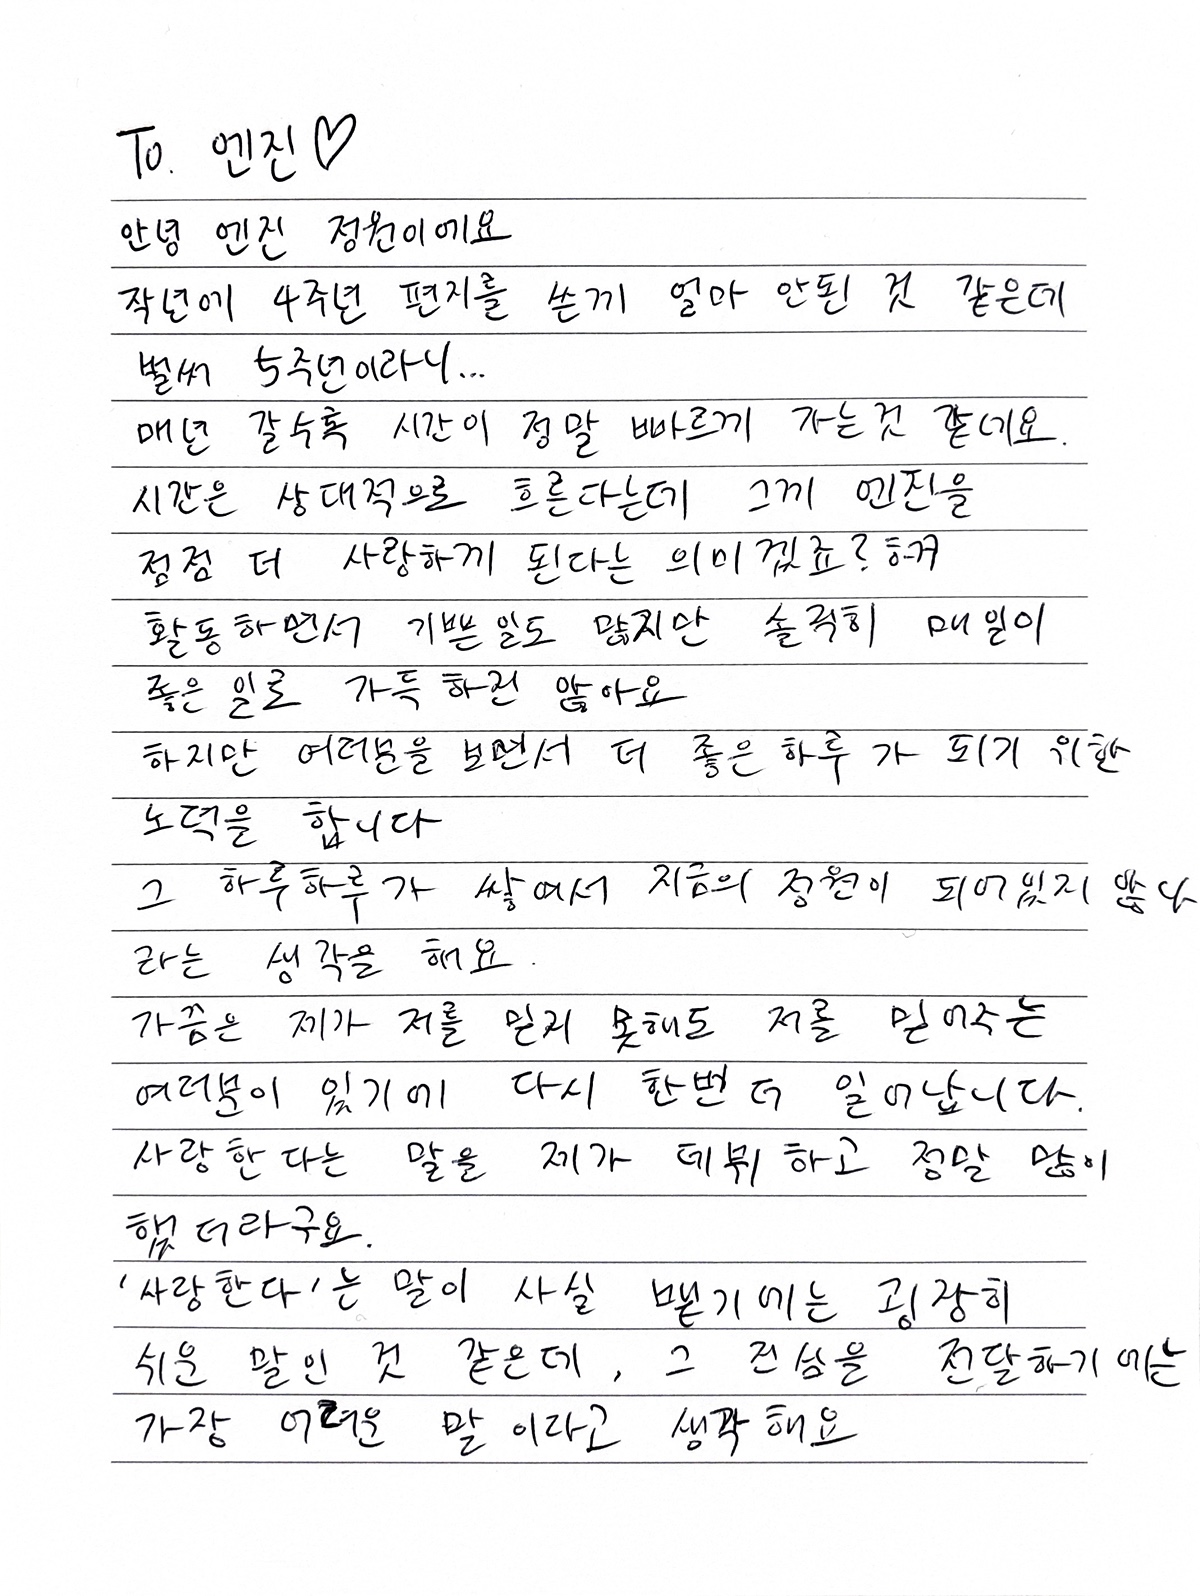 To. 엔진♡
안녕 엔진 정원이에요
작년에 4주년 편지를 쓴게 얼마 안된 것 같은데
벌써 5주년이라니...
매년 갈수록 시간이 정말 빠르게 가는것 같네요.
시간은 상대적으로 흐른다는데 그게 엔진을
점점 더 사랑하게 된다는 의미겠죠? 허허
활동하면서 기쁜일도 많지만 솔직히 매일이
좋은 일로 가득하진 않아요
하지만 여러분을 보면서 더 좋은 하루가 되기 위한
노력을 합니다
그 하루하루가 쌓여서 지금의 정원이 되어있지 않나
라는 생각을 해요.
가끔은 제가 저를 믿지 못해도 저를 믿어주는
여러분이 있기에 다시 한번 더 일어납니다.
사랑한다는 말을 제가 데뷔하고 정말 많이
했더라구요.
'사랑한다'는 말이 사실 뱉기에는 굉장히
쉬운 말인 것 같은데, 그 진심을 전달하기에는
가장 어려운 말이라고 생각해요